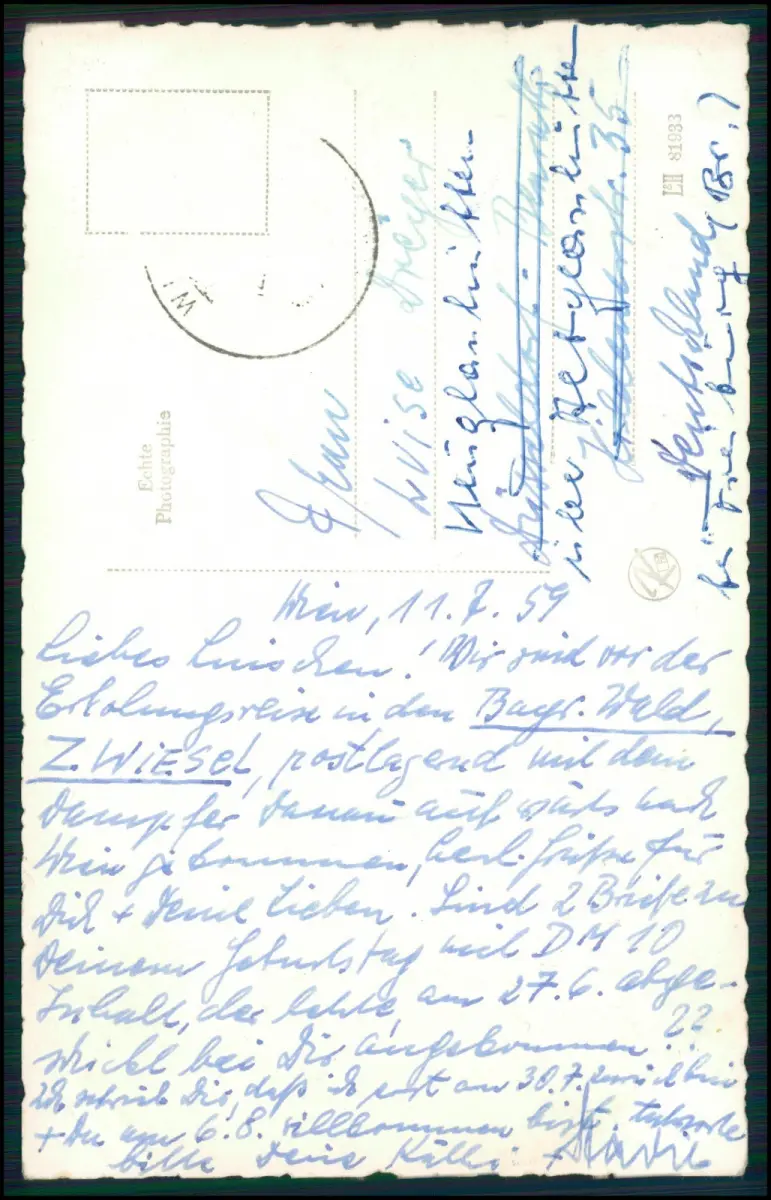 Echte
Photographie
WI
Frau
Luise Dreyer
Neuglashütten
Düsseldorf-Benrath
über Altglashütte
35
LH 81933
Deutschland
bei Freiburg (Br.)
Wien, 11.7.59
Liebes Luischen! Wir sind vor der
Erholungsreise in den Bayr. Wald,
Z. WIESEL, postlagernd mit dem
Dampfer Donau aufwärts nach
Wien gekommen, herl. Grüße für
Dich + Deine Lieben. Sind 2 Briefe zu
Deinem Geburtstag mit DM 10
Inhalt, der letzte am 27.6. abge-
schickt bei Dir angekommen ??
Ich schrieb Dir, daß ich erst am 30.7. zurück bin
+ Du am 6.8. willkommen bist.
bitte Deine Källi +